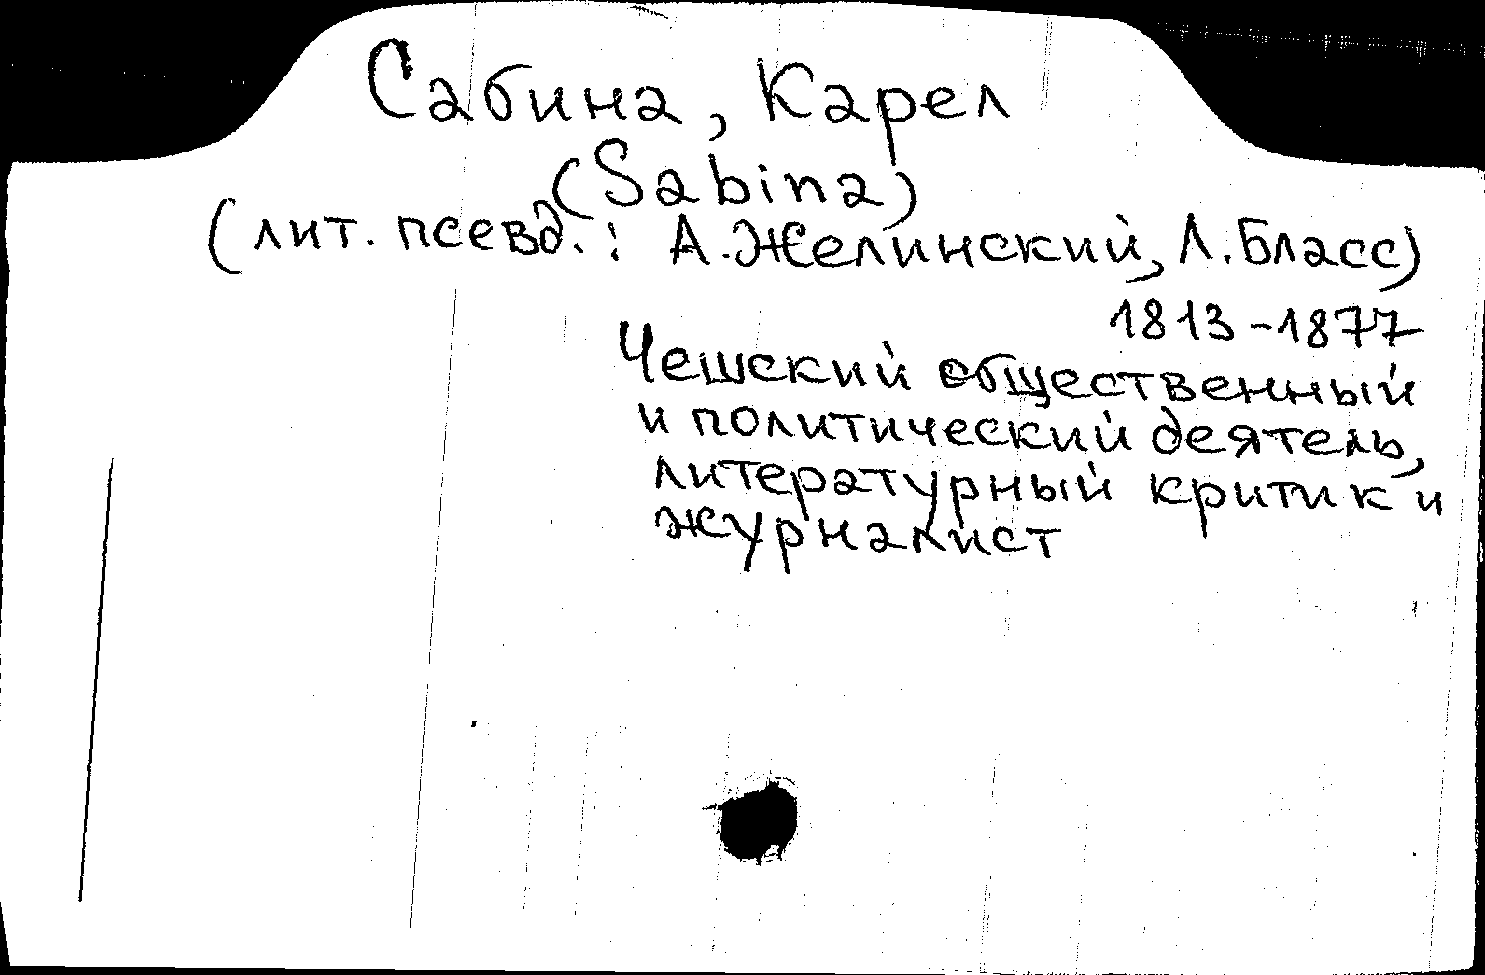 Сабина, Карел
(Sabina)
(лит. псевд.: А. Желинский, Л. Бласс)
1813-1877
Чешский общественный
и политический деятель,
литературный критик и
журналист